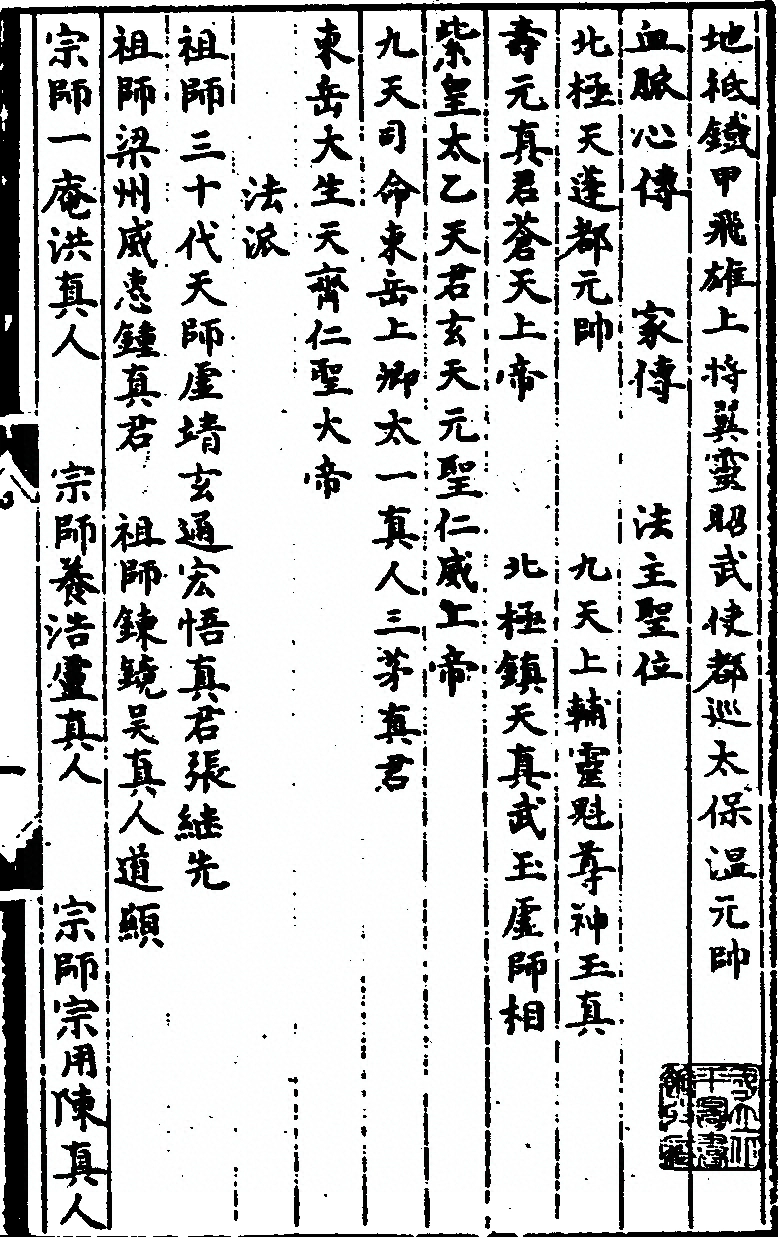 地祇鐵甲飛雄上將翼靈昭武使都巡太保溫元帥
血脈心傳 家傳 法主聖位
北極天蓬都元帥 九天上輔靈魁尊神玉真
壽元真君蒼天上帝 北極鎮天真武玉虛師相
紫皇太乙天君玄天元聖仁威上帝
九天司命東岳上卿太一真人三茅真君
東岳大生天齊仁聖大帝
法派
祖師三十代天師虛靖玄通宏悟真君張繼先
祖師梁州威惠鍾真君 祖師鍊鏡吳真人道顯
宗師一庵洪真人 宗師養浩盧真人 宗師宗用陳真人